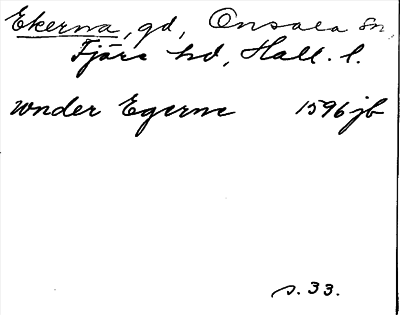 Ekerna, gd, Onsala sn,
Fjäre hd, Hall. l.
wnder Egerne 1596 jb
s. 33.